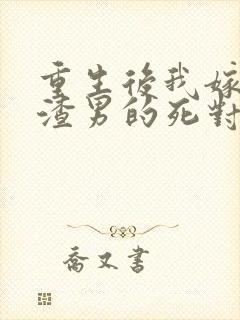 重生後我嫁
渣男的死對
喬又書